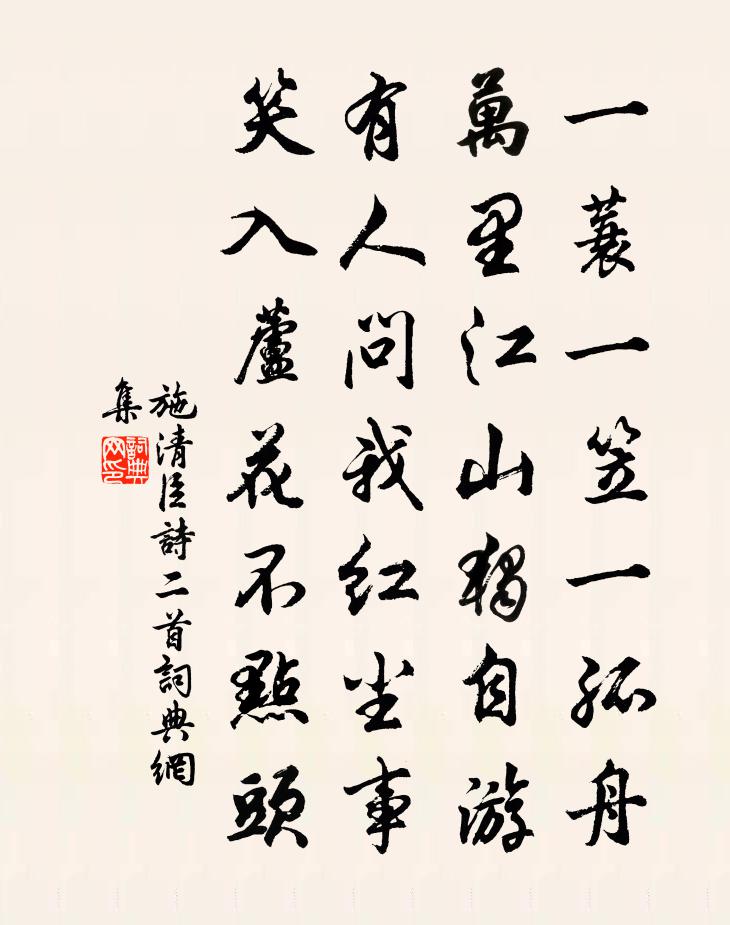 一蓑一笠一孤舟
萬里江山獨自游
有人問我紅塵事
笑入蘆花不點頭
施清臣詩二首詞典網
集
詞典网印